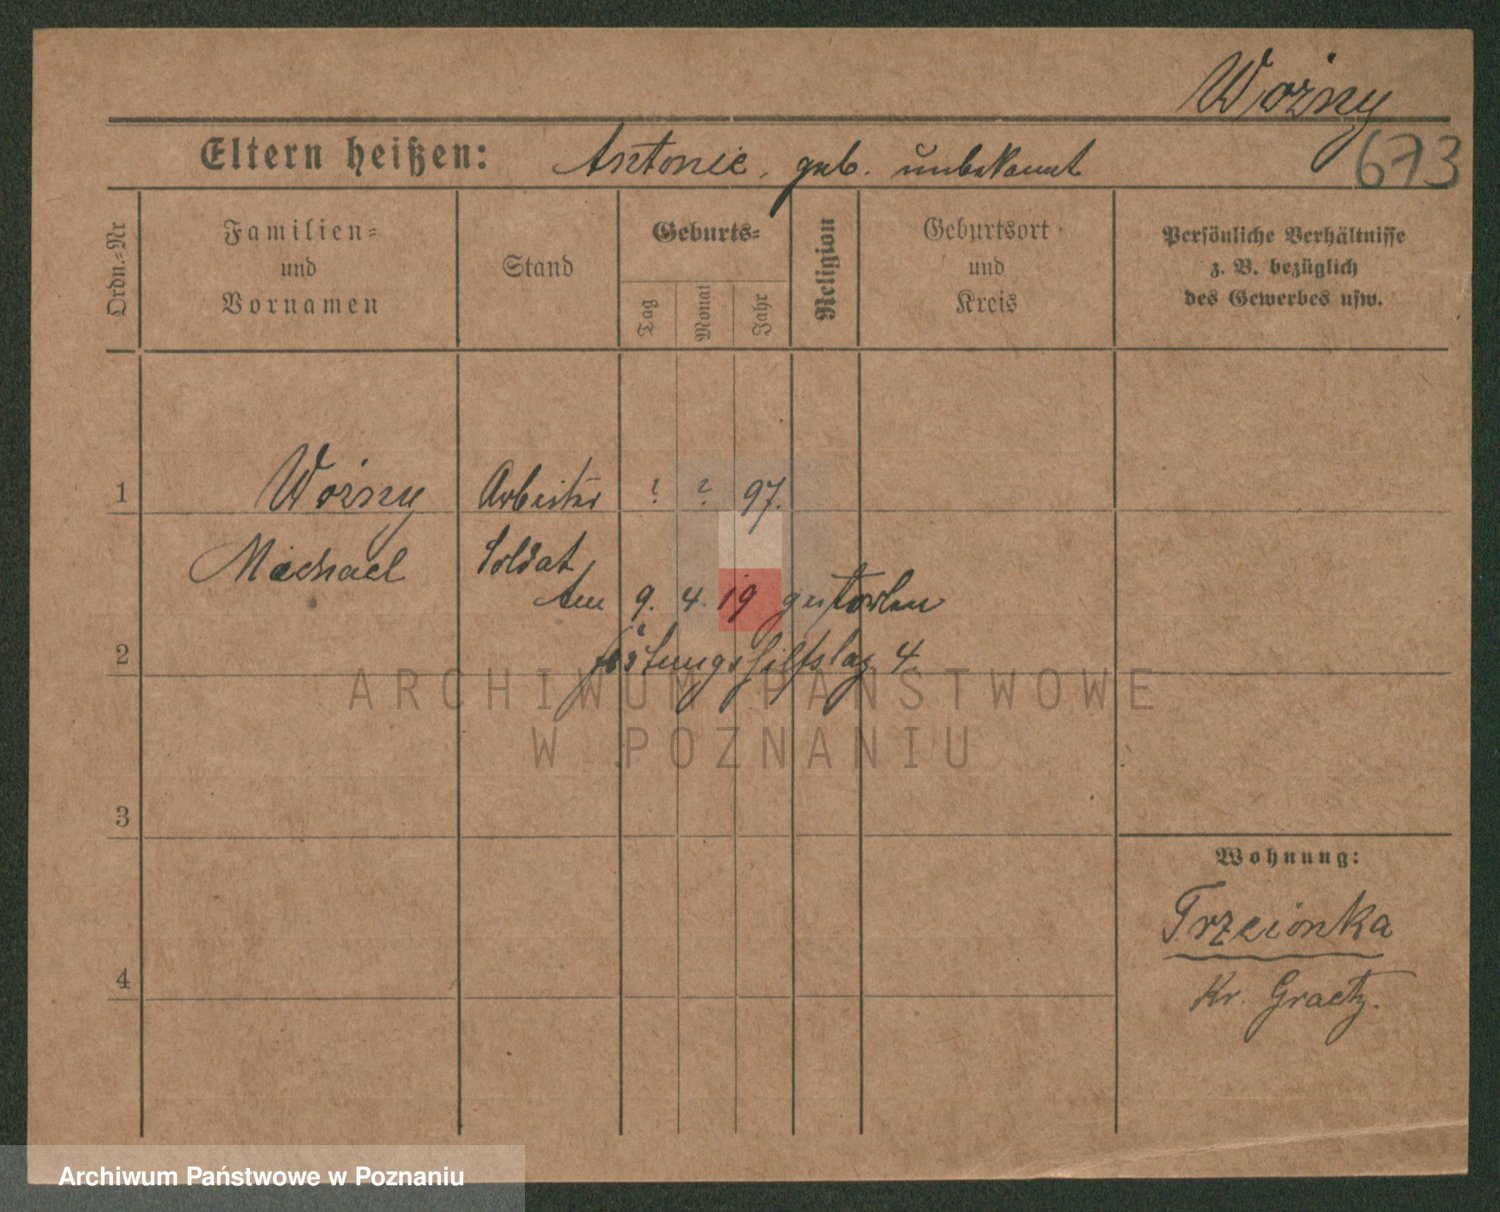 Woźny
673
Eltern heißen: Antonie, geb. unbekannt
Ordn.-Nr
Familien-
und
Vornamen
Stand
Geburts-
Tag
Monat
Jahr
Religion
Geburtsort
und
Kreis
Persönliche Verhältnisse
z. B. bezüglich
des Gewerbes usw.
1
Woźny
Arbeiter
? ? 97.
Michael
Soldat
Am 9. 4. 19 gestorben
2
Festungshilfslaz. 4.
ARCHIWUM PAŃSTWOWE
W POZNANIU
3
Wohnung:
Trzcionka
4
Kr. Graetz.
Archiwum Państwowe w Poznaniu